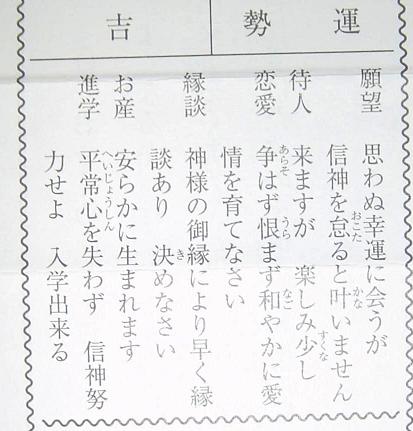 運勢 吉
願望 思わぬ幸運に会うが
信神を怠ると叶いません
待人 来ますが 楽しみ少し
恋愛 争はず恨まず和やかに愛
情を育てなさい
縁談 神様の御縁により早く縁
談あり 決めなさい
お産 安らかに生まれます
進学 平常心を失わず 信神努
力せよ 入学出来る